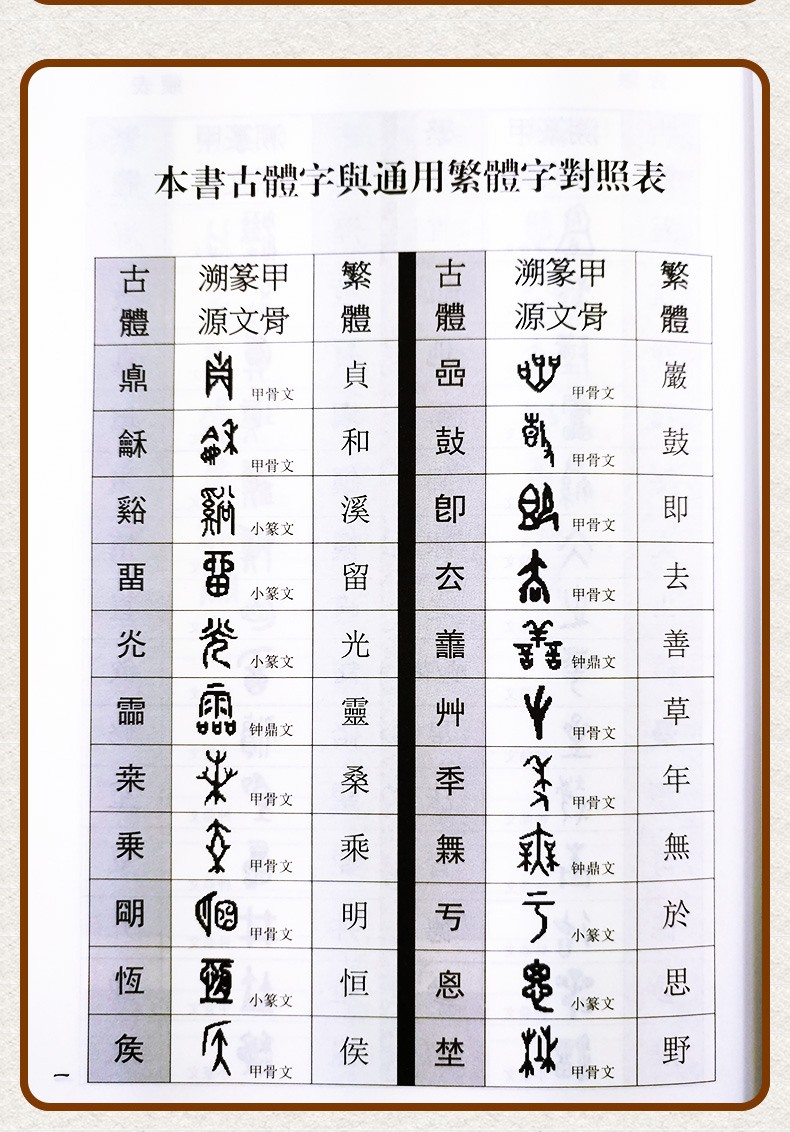 本書古體字與通用繁體字對照表
古 溯篆甲 繁 古 溯篆甲 繁
體 源文骨 體 體 源文骨 體
鼑 甲骨文 貞 喦 甲骨文 巖
龢 甲骨文 和 鼔 甲骨文 鼓
谿 小篆文 溪 卽 甲骨文 即
畱 小篆文 留 厺 甲骨文 去
灮 小篆文 光 譱 钟鼎文 善
霝 钟鼎文 靈 艸 甲骨文 草
桒 甲骨文 桑 秊 甲骨文 年
乗 甲骨文 乘 钟鼎文 無
朙 甲骨文 明 亐 小篆文 於
恆 小篆文 恒 恖 小篆文 思
矦 甲骨文 侯 埜 甲骨文 野
一